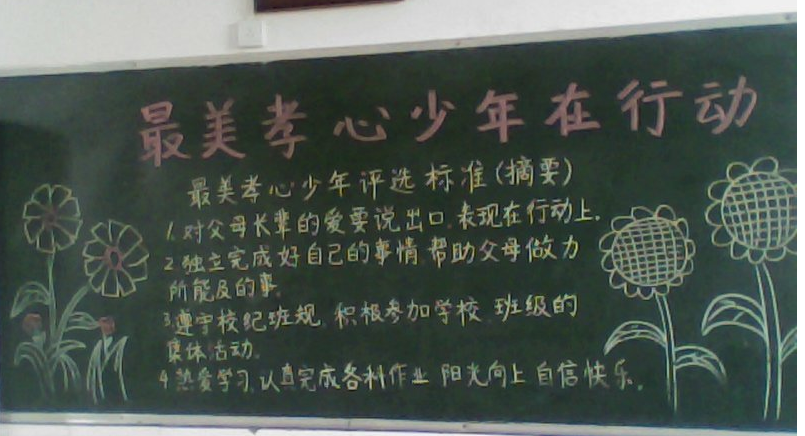 最美孝心少年在行动
最美孝心少年评选标准(摘要)
1.对父母长辈的爱要说出口,表现在行动上.
2.独立完成好自己的事情,帮助父母做力
所能及的事.
3.遵守校纪班规,积极参加学校、班级的
集体活动.
4.热爱学习,认真完成各科作业,阳光向上,自信快乐.